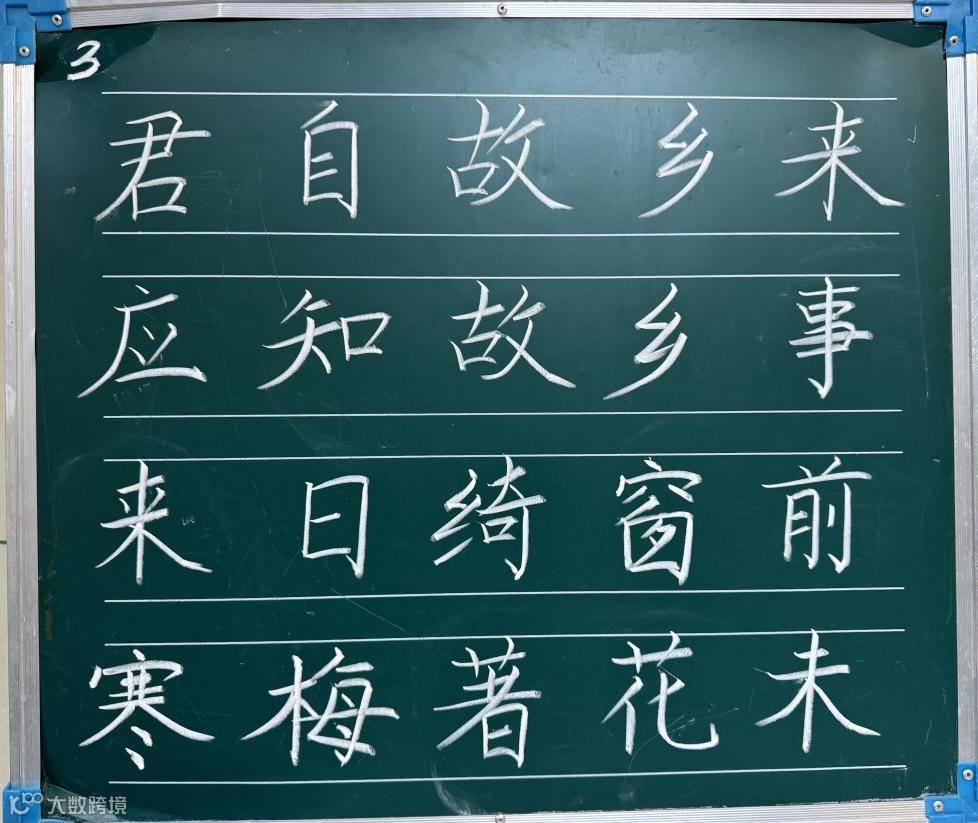 3
君自故乡来
应知故乡事
来日绮窗前
寒梅著花未
大数跨境